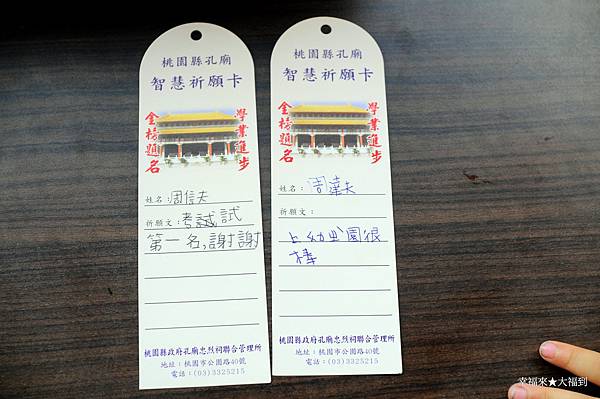 桃園縣孔廟
智慧祈願卡
金榜題名
學業進步
姓名：周信夫
祈願文：考誠試
第一名,謝謝
桃園縣政府孔廟忠烈祠聯合管理所
地址：桃園市公園路40號
電話：(03)3325215
桃園縣孔廟
智慧祈願卡
金榜題名
學業進步
姓名：周達夫
祈願文：
上幼兒園很
棒
桃園縣政府孔廟忠烈祠聯合管理所
地址：桃園市公園路40號
電話：(03)3325215
幸福來★大福到